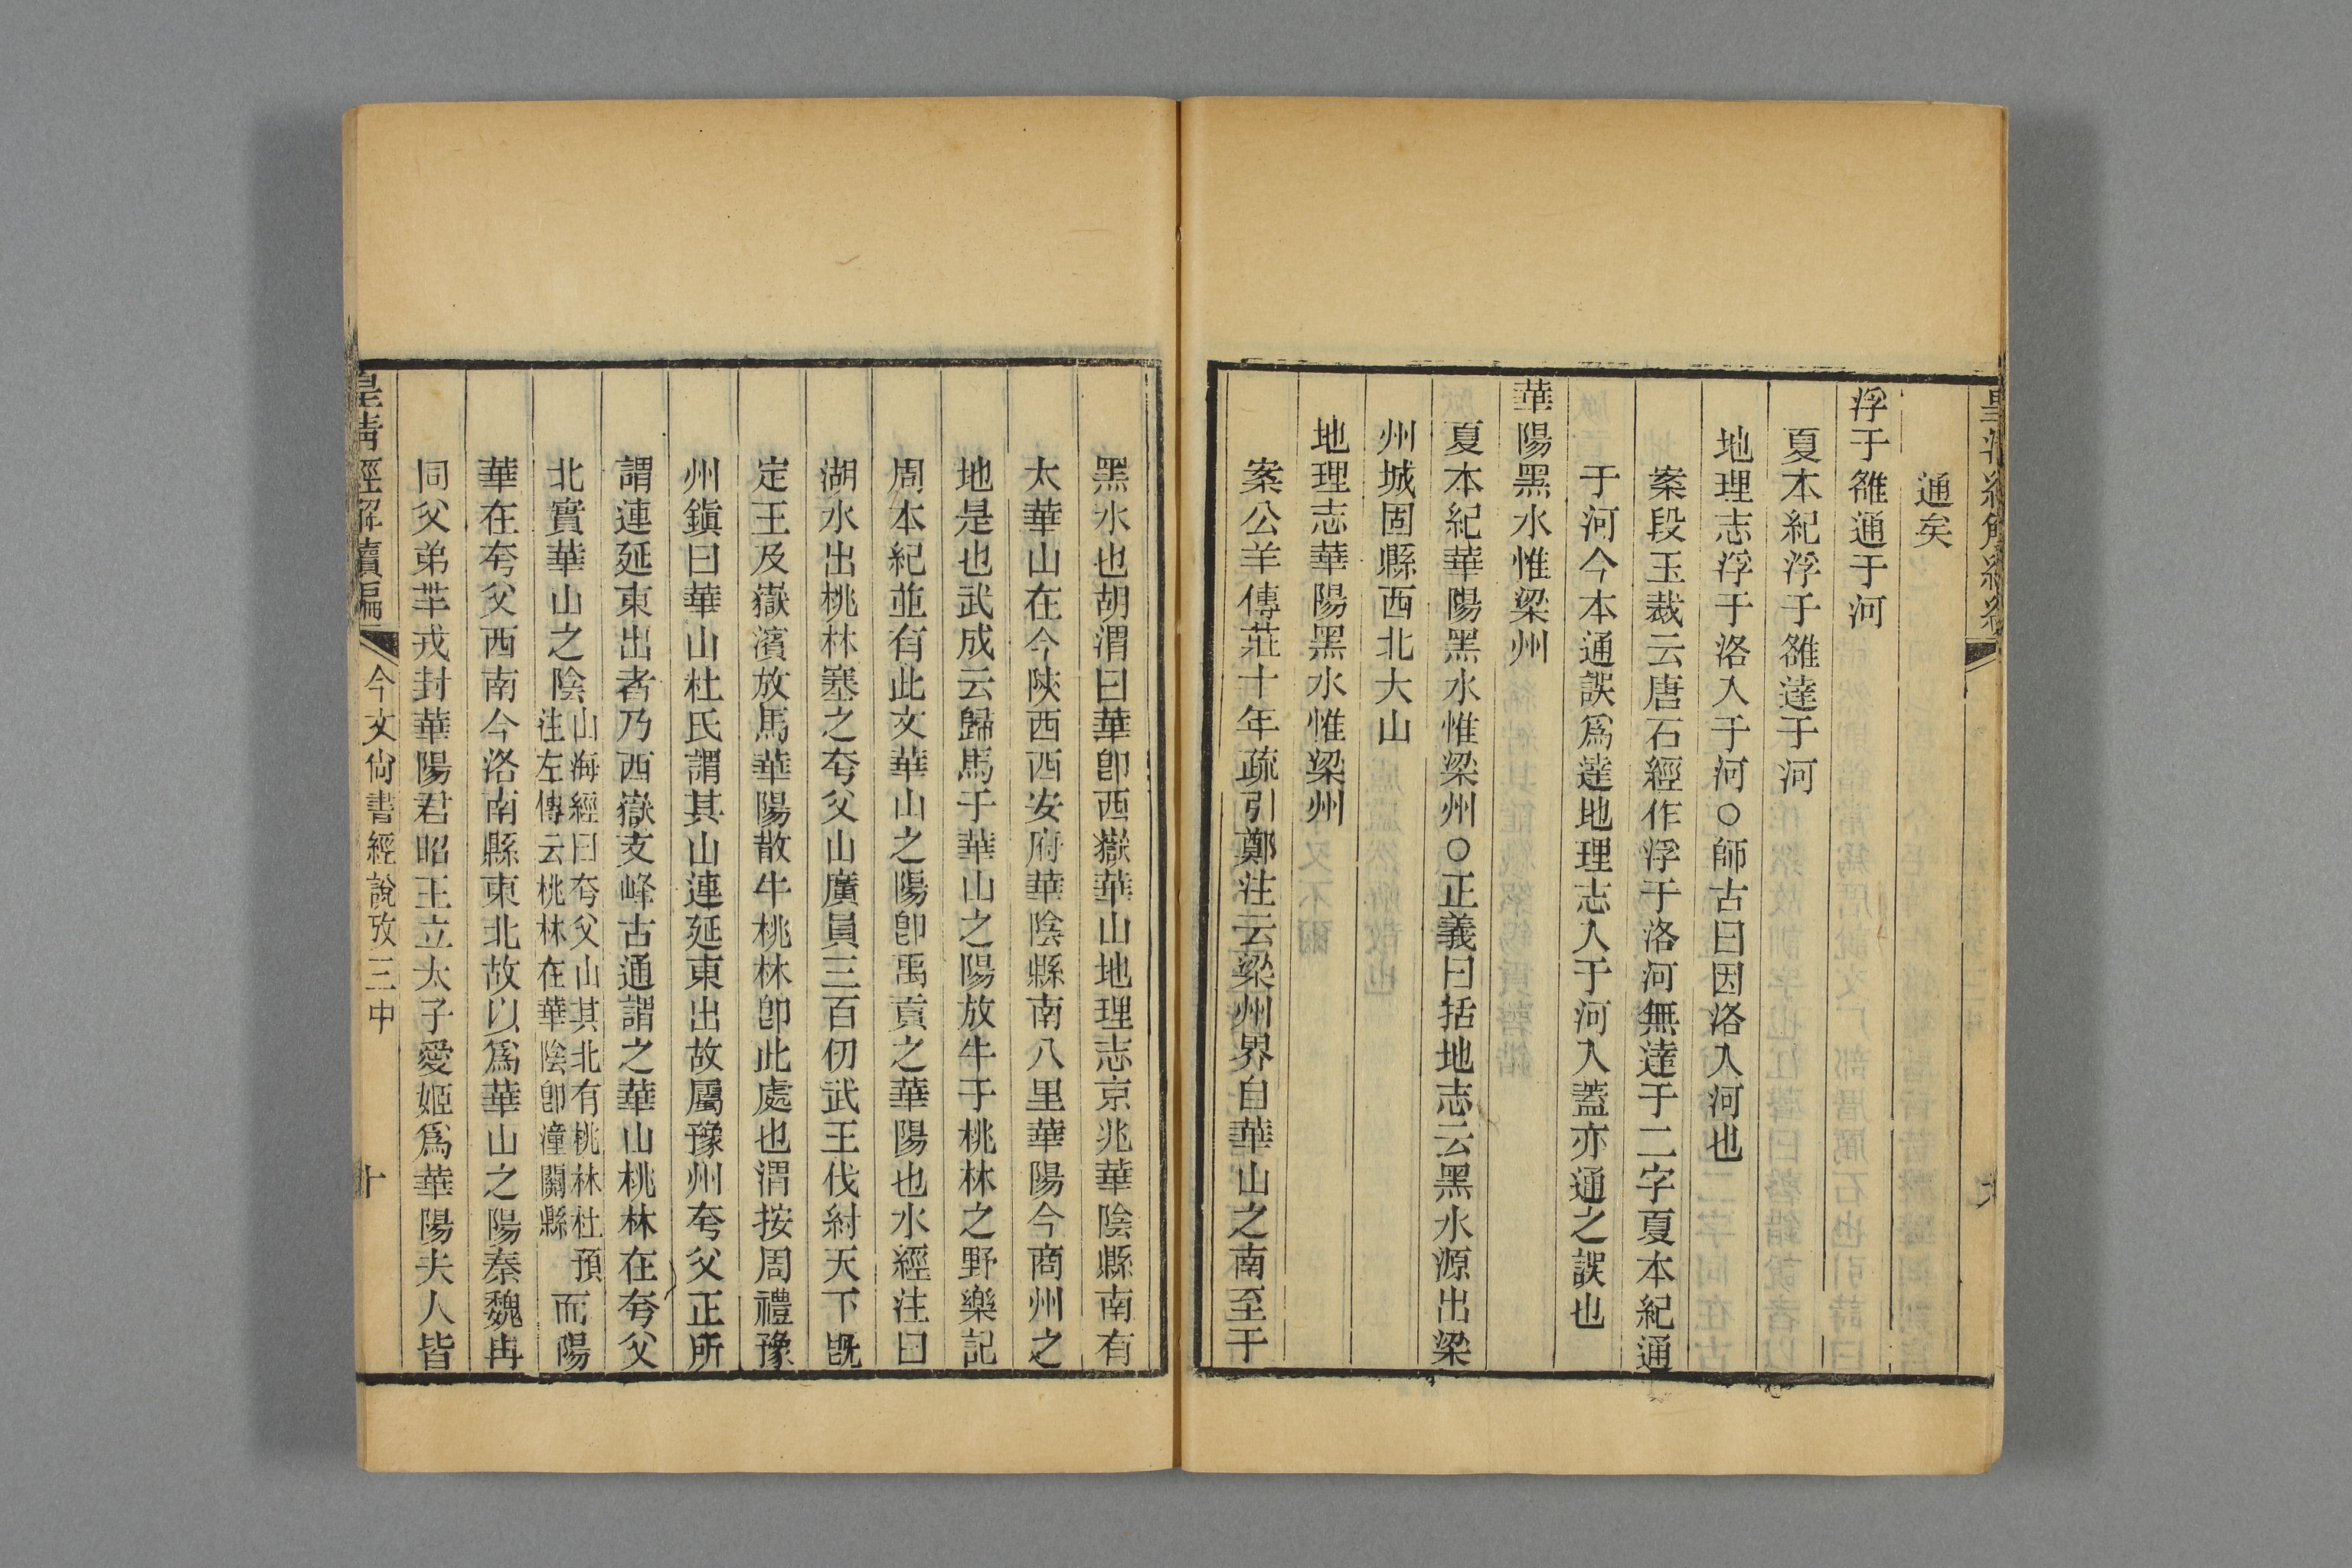 通矣
浮于雒通于河
夏本紀浮于雒達于河
地理志浮于洛入于河○師古曰因洛入河也
案段玉裁云唐石經作浮于洛河無達于二字夏本紀通
于河今本通誤爲達地理志入于河入蓋亦通之誤也
華陽黑水惟梁州
夏本紀華陽黑水惟梁州○正義曰括地志云黑水源出梁
州城固縣西北大山
地理志華陽黑水惟梁州
案公羊傳莊十年疏引鄭注云梁州界自華山之南至于
黑水也胡渭曰華卽西嶽華山地理志京兆華陰縣南有
太華山在今陝西西安府華陰縣南八里華陽今商州之
地是也武成云歸馬于華山之陽放牛于桃林之野樂記
周本紀並有此文華山之陽卽禹貢之華陽也水經注曰
湖水出桃林塞之夸父山廣員三百仞武王伐紂天下旣
定王及嶽濱放馬華陽散牛桃林卽此處也渭按周禮豫
州鎭曰華山杜氏謂其山連延東出故屬豫州夸父正所
謂連延東出者乃西嶽支峰古通謂之華山桃林在夸父
北實華山之陰山海經曰夸父山其北有桃林杜預注左傳云桃林在華陰卽潼關縣而陽
華在夸父西南今洛南縣東北故以爲華山之陽秦魏冉
同父弟芈戎封華陽君昭王立太子愛姬爲華陽夫人皆
皇淸經解續編 今文尙書經說攷三中 十